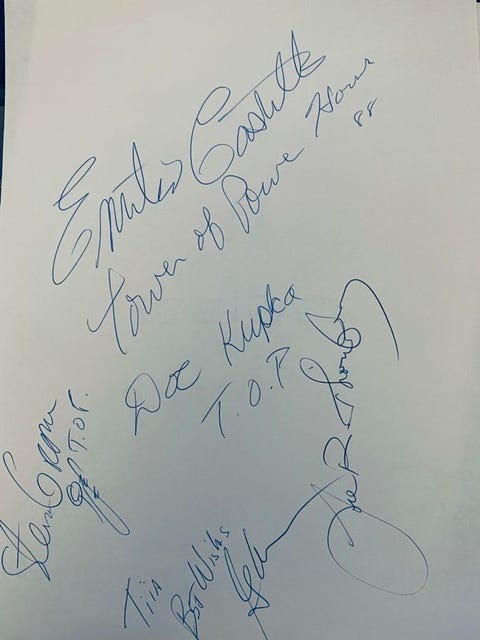 Emilio Castillo
Tower of Power Horns
88
Doc Kupka
T.O.P
Steve Grove
T.O.P.
Tiiia
Best Wishes
Lee R Thornburg